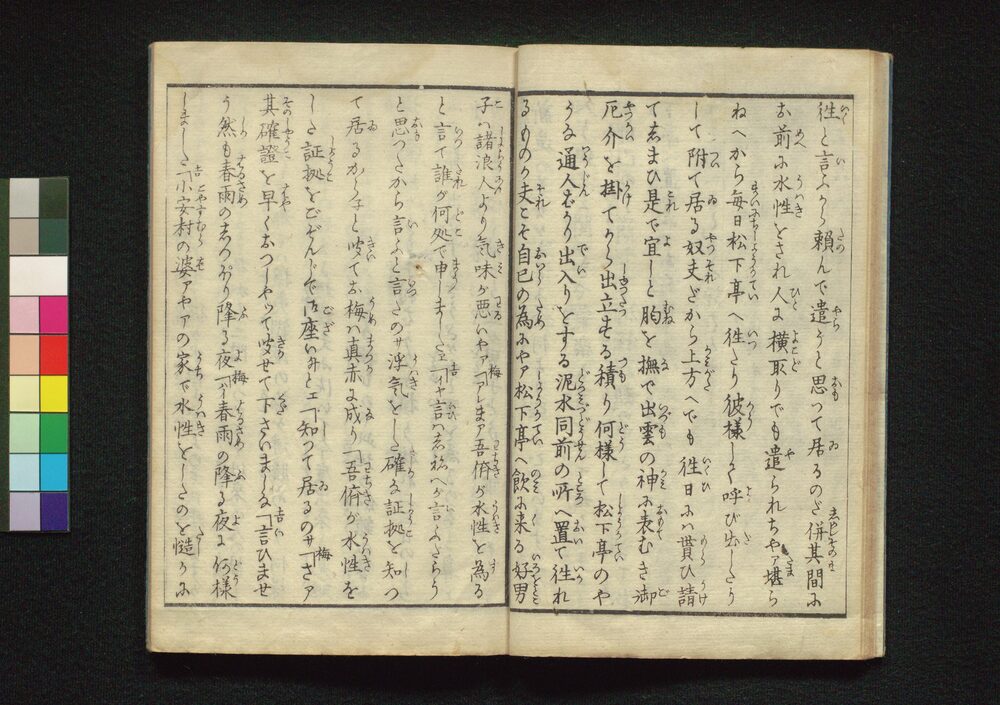 徃と言ふから頼んで遣らうと思つて居るのだ併其間に
お前に水性をされ人に横取りでも遣られちやア堪ら
ねへから毎日松下亭へ徃たり彼様して呼び出したり
して附て居る奴夫だから上方へでも徃日にハ貰ひ請
てしまひ是で宜しと胸を撫で出雲の神に表むき御
厄介を掛てから出立する積り何様して松下亭のや
うな通人ばかり出入りをする泥水同前の所へ置て徃れ
るものか夫こそ自已の為にやア松下亭へ飲に来る好男
子ハ諸浪人より気味が悪いやア梅「アレまア吾儕が水性を為る
と言て誰が何処で申しましたヱ吉「イヤ言ハしねへが言ふだらう
と思つたから言ふと言たのサ浮気をした確な証拠を知つ
て居るからネと聞てお梅ハ真赤に成り「吾儕が水性を
した証拠をごぞんじで御座いますとヱ「知つて居るのサ梅「さア
其確證を早くおつしやツて聞せて下さいましな吉「言ひませ
う然も春雨のしつぽり降る夜梅「イ春雨の降る夜に何様
しました吉「小安村の婆アやアの家で水性をしたのを慥に